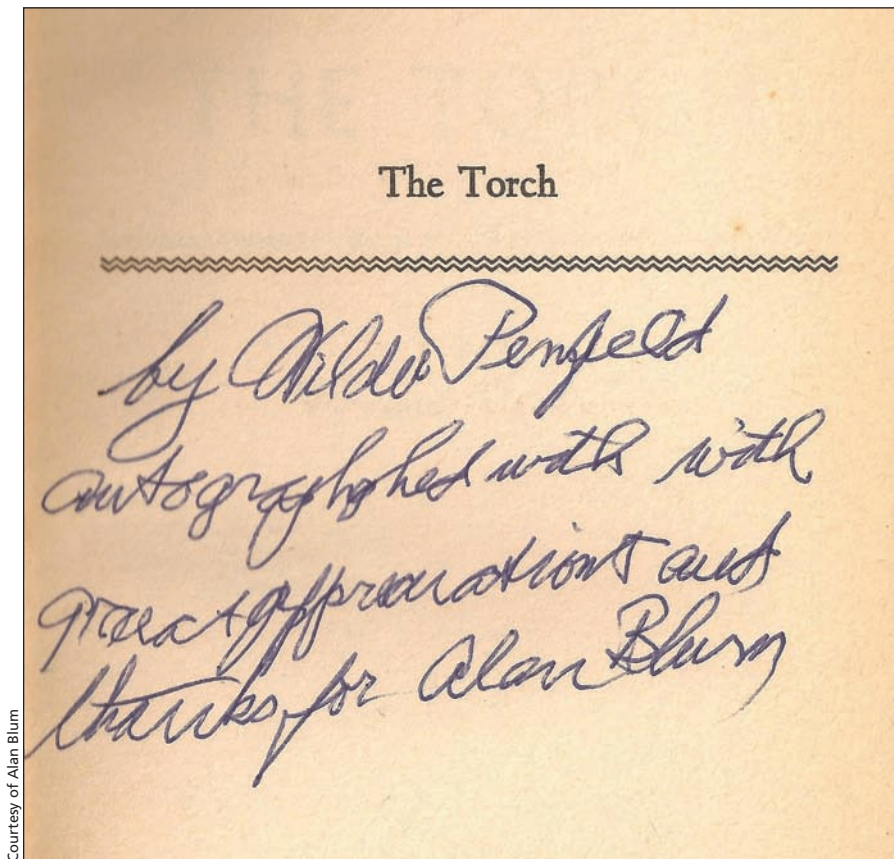 The Torch
by Wilder Penfield
autographhed with with
great appreciation and
thanks for Alan Blum
Courtesy of Alan Blum